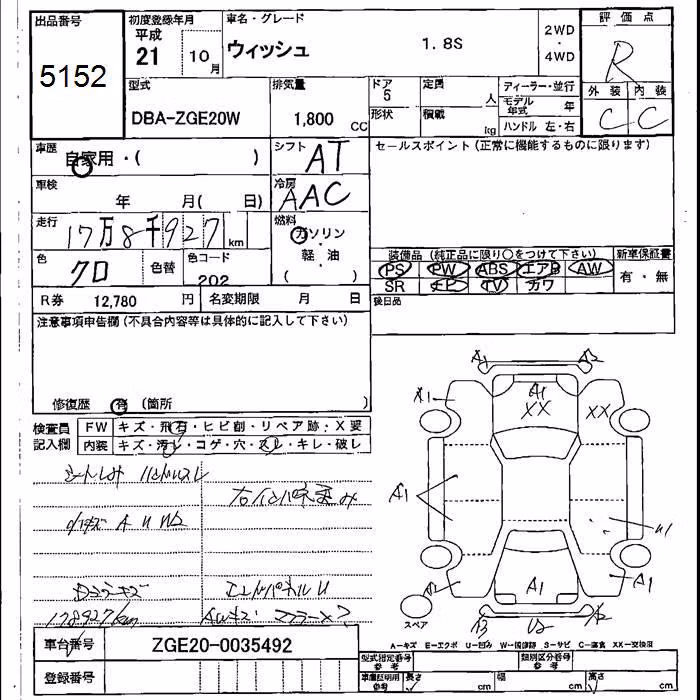 出品番号
5152
初度登録年月
平成
21 10月
車名・グレード
ウィッシュ 1.8S
2WD
・
4WD
評価点
R
外装 内装
C C
型式
DBA-ZGE20W
排気量
1,800 CC
ドア
5
形状
定員
人
積載
kg
ディーラー・並行
モデル年式 年
ハンドル 左・右
車歴
自家用・( )
シフト
AT
車検
年 月( 日)
冷房
AAC
走行
17万8千927km
燃料
ガソリン
・
軽・油
( )
色
クロ
色替
色コード
202
R券 12,780円
名変期限 月 日
セールスポイント(正常に機能するものに限ります)
装備品(純正品に限り○をつけて下さい)
PS PW ABS エアB AW
SR EP TV カワ
新車保証書
有・無
後日品
注意事項申告欄(不具合内容等は具体的に記入して下さい)
修復歴 有(箇所 )
検査員
記入欄
FW キズ・飛石・ヒビ割・リペア跡・X要
内装 キズ・汚レ・コゲ・穴・スレ・キレ・破レ
178927km
A1 A2
A1
A1
XX
XX
A1
A1
A1
スペア
A-キズ E-エクボ U-凹み W-補修跡 S-サビ C-腐食 XX-交換済
車台番号 ZGE20-0035492
登録番号
型式指定番号
参考
類別区分番号
参考
車庫証明用
参考
長さ cm
幅 cm
高さ cm